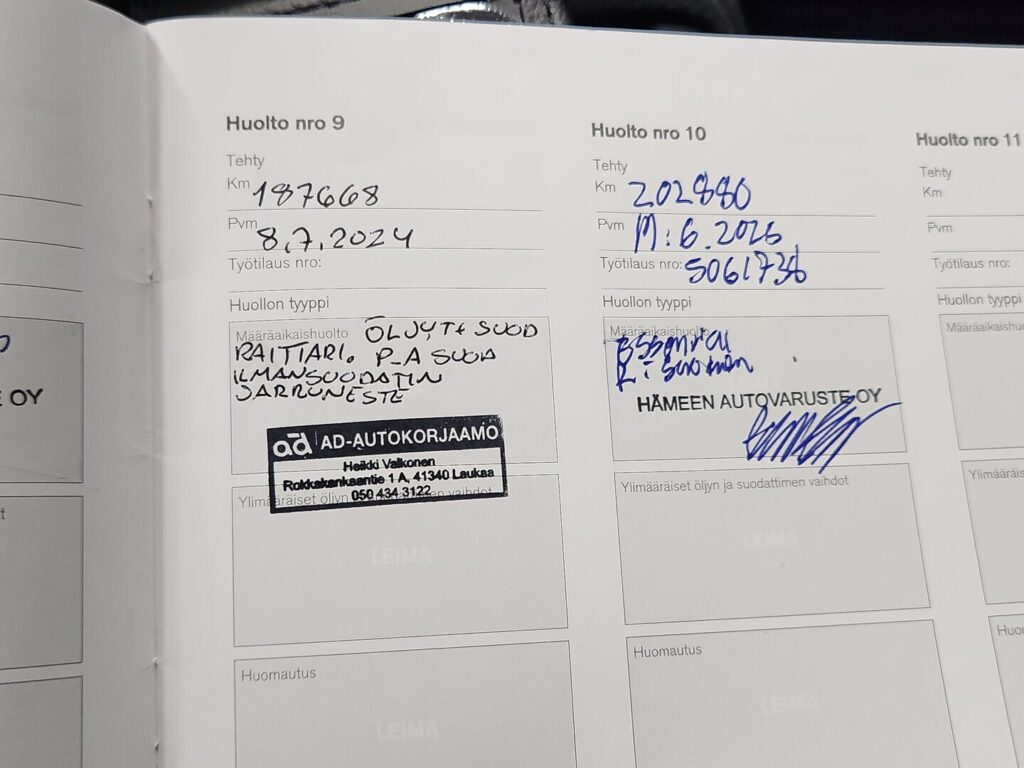 OY
t
Huolto nro 9
Tehty
Km 187668
Pvm 8.7.2024
Työtilaus nro:
Huollon tyyppi
Määräaikaishuolto ÖLJYT+ SUOD
RAITTARI. P-A SUOD
ILMANSUODATIN
JARRUNESTE
ad AD-AUTOKORJAAMO
Heikki Valkonen
Rokkakankaantie 1 A, 41340 Laukaa
050 434 3122
Ylimääräiset öljyn vaihdot
LEIMA
Huomautus
LEIMA
Huolto nro 10
Tehty
Km 202880
Pvm 11.6.2025
Työtilaus nro: 5061736
Huollon tyyppi
Määräaikaishuolto
HÄMEEN AUTOVARUSTE OY
Ylimääräiset öljyn ja suodattimen vaihdot
LEIMA
Huomautus
LEIMA
Huolto nro 11
Tehty
Km
Pvm
Työtilaus nro:
Huollon tyyppi
Määräaikaishuol
Ylimääräiset
Huom